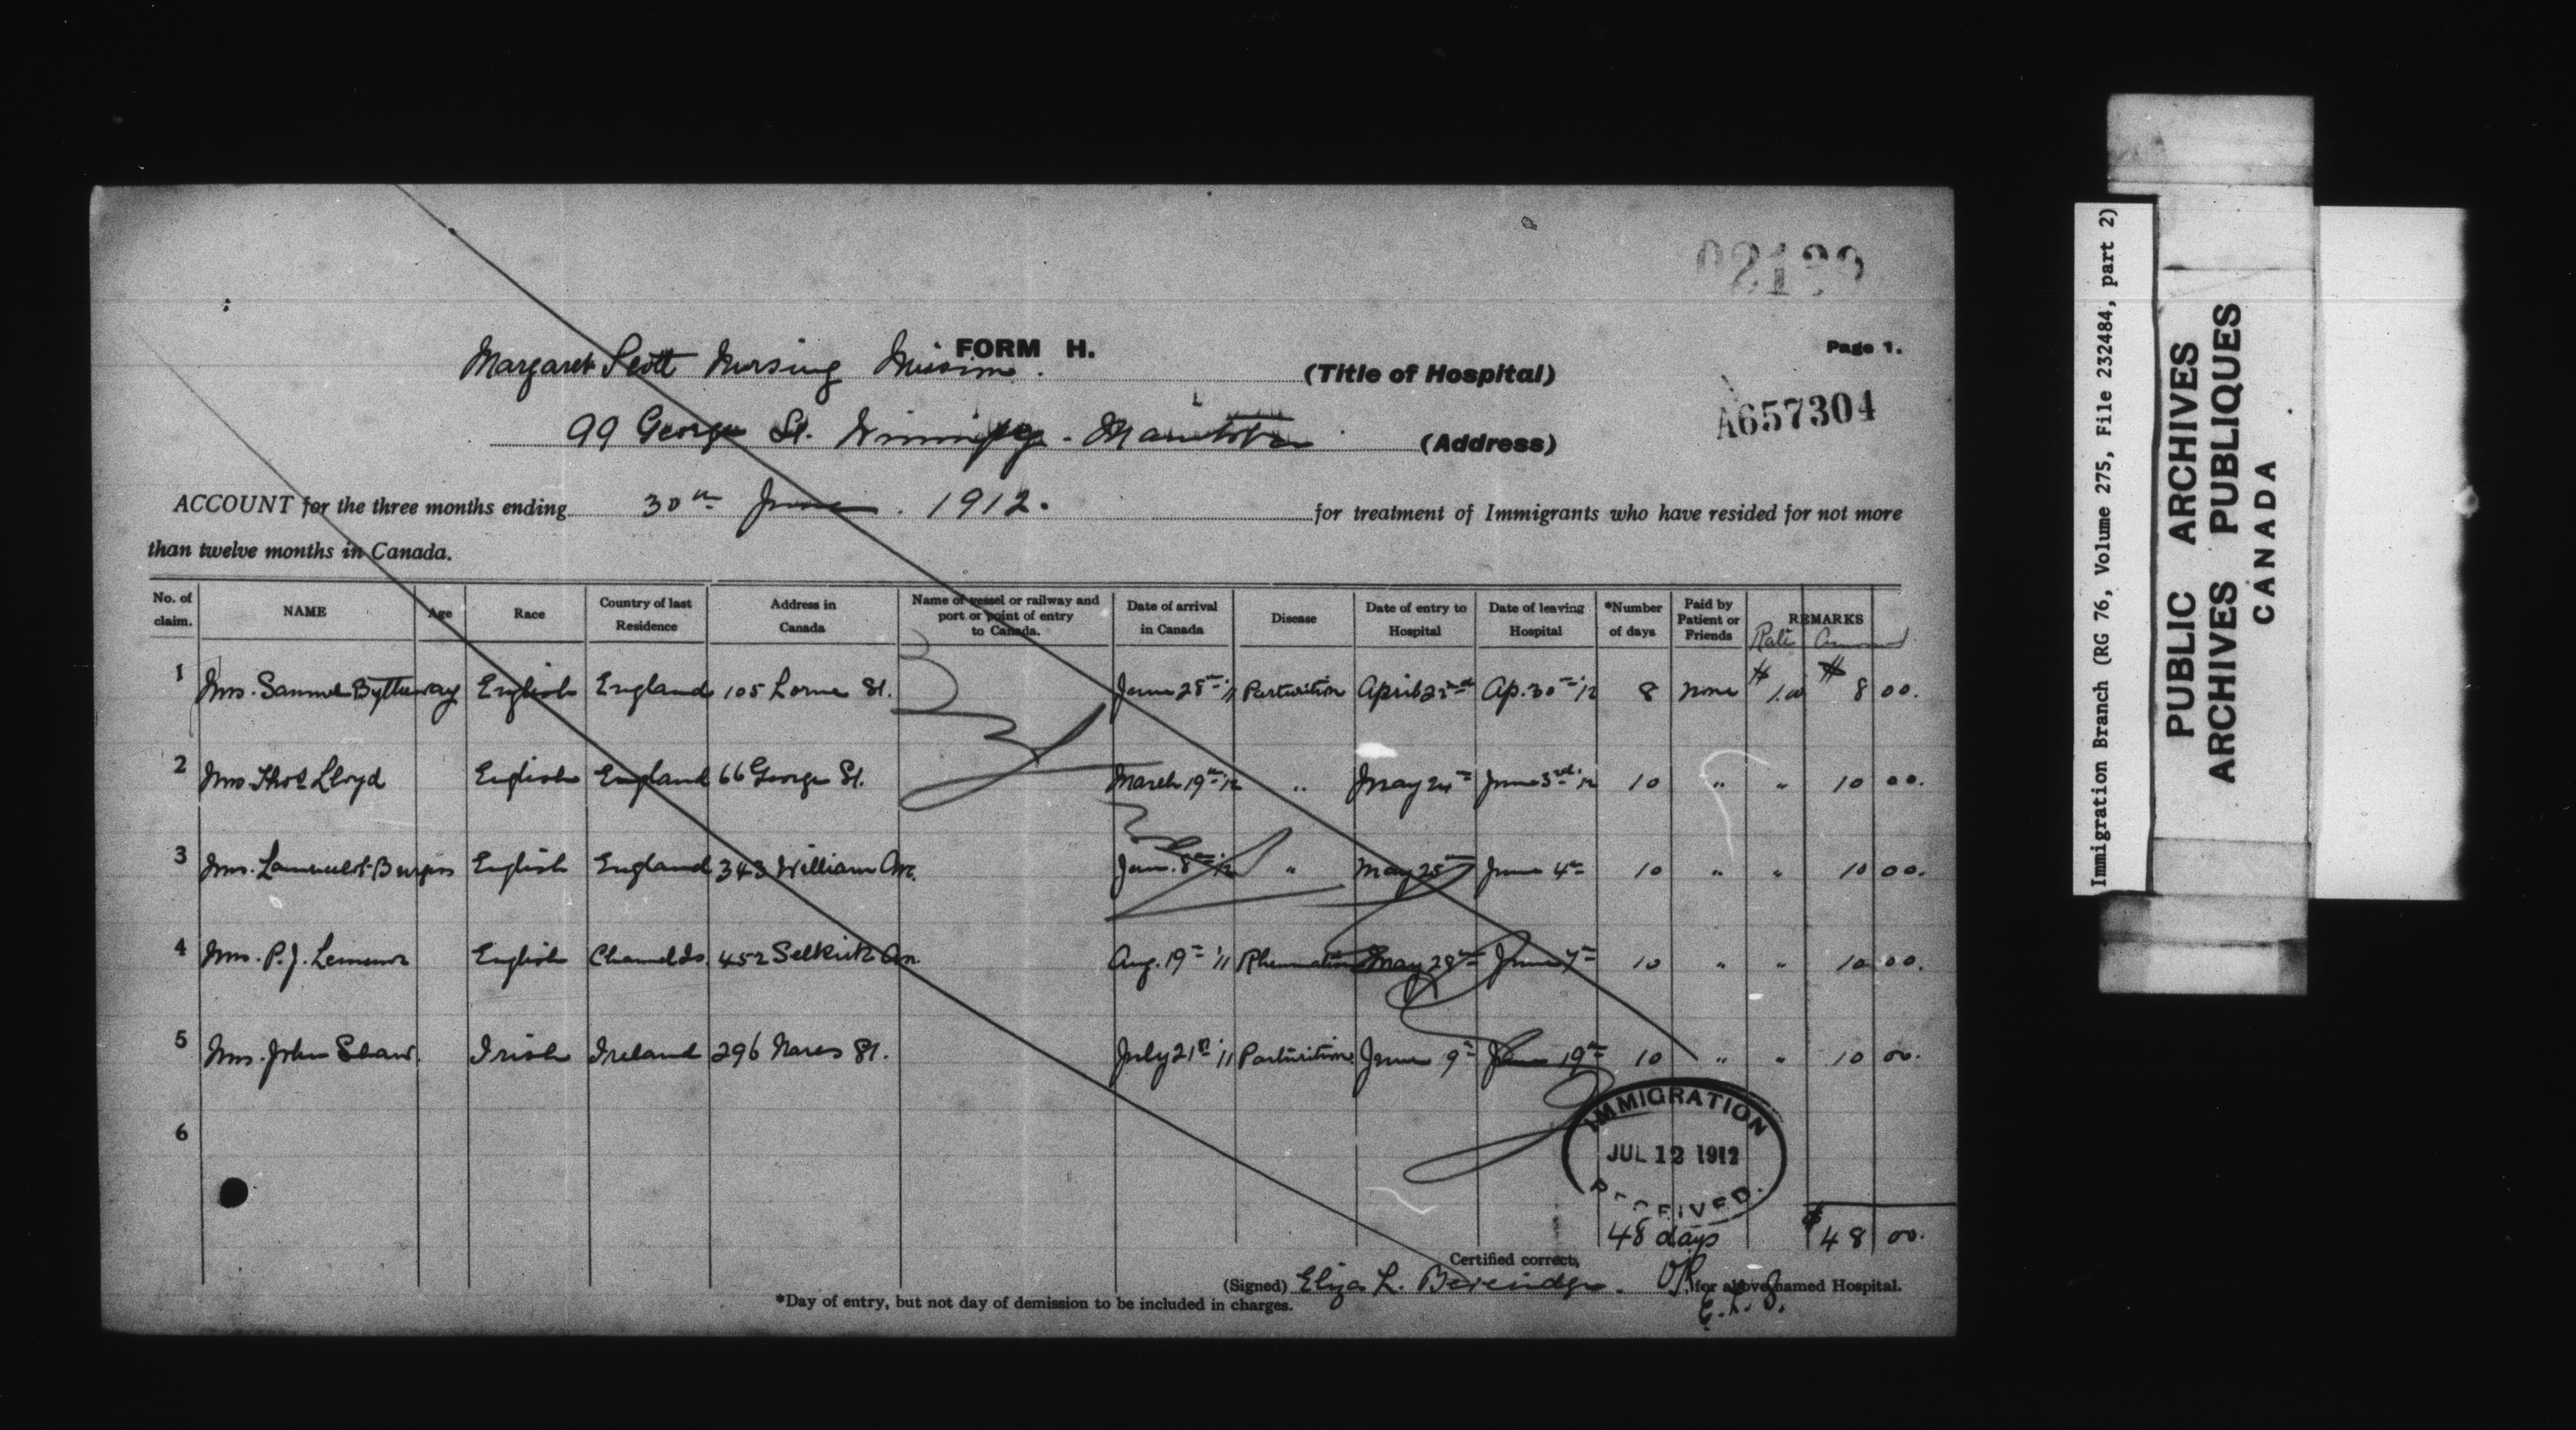 02130
FORM H.
Page 1.
Margaret Scott Nursing Mission. (Title of Hospital)
A657304
99 George St. Winnipeg - Manitoba (Address)
ACCOUNT for the three months ending 30th June. 1912. for treatment of Immigrants who have resided for not more
than twelve months in Canada.
No. of claim. NAME Age Race Country of last Residence Address in Canada Name of vessel or railway and port or point of entry to Canada. Date of arrival in Canada Disease Date of entry to Hospital Date of leaving Hospital *Number of days Paid by Patient or Friends REMARKS Rate Amount
1 Mrs. Samuel Bytheway English England 105 Lorne St. June 28th '11 Parturition April 22nd Ap. 30th '12 8 none $1.00 $8 00.
2 Mrs Thos Lloyd English England 66 George St. March 19th '12 " May 24th June 3rd '12 10 " " 10 00.
3 Mrs. Burgess English England 343 William Ave. Jan. 8th '12 " May 25th June 4th 10 " " 10 00.
4 Mrs. P. J. English Channel Is. 452 Selkirk Ave. Aug. 19th '11 Rheumatism May 28th June 7th 10 " " 10 00.
5 Mrs. John Shaw. Irish Ireland 296 Nares St. July 21st '11 Parturition June 9th June 19th 10 " " 10 00.
6
IMMIGRATION
JUL 12 1912
RECEIVED.
48 days $48 00.
Certified correct,
(Signed) Eliza L. Beveridge. OK for above named Hospital.
E. L. S.
*Day of entry, but not day of demission to be included in charges.
Immigration Branch (RG 76, Volume 275, File 232484, part 2)
PUBLIC ARCHIVES
ARCHIVES PUBLIQUES
CANADA